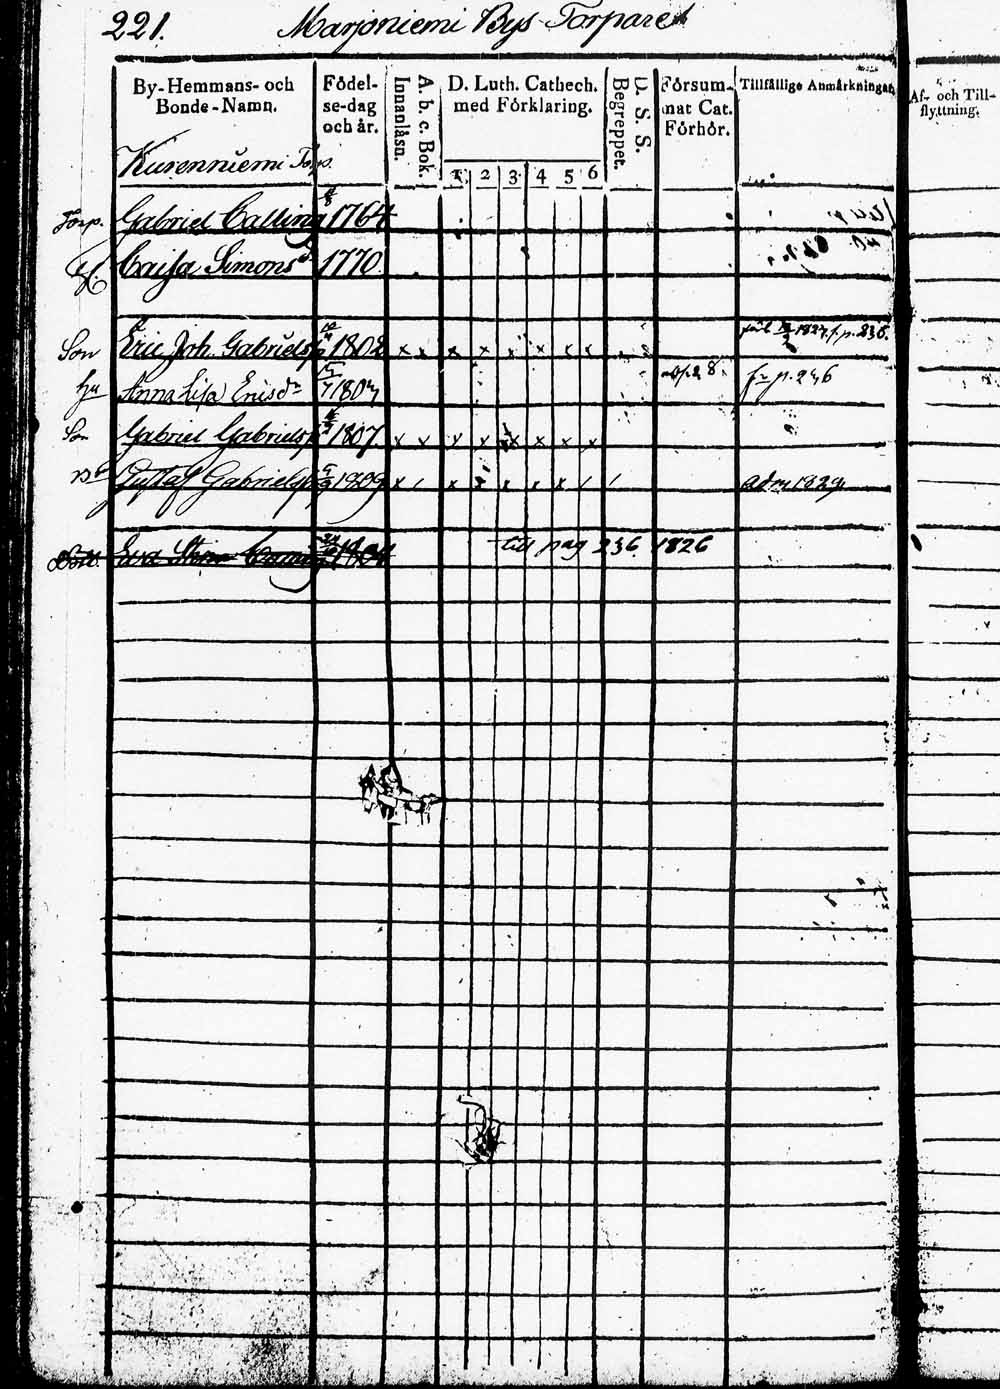 221. Marjoniemi Bys Torpare
By-Hemmans- och Bonde-Namn.
Födel-se-dag och år.
A. b. c. Bok. Innanläsn.
D. Luth. Cathech. med Förklaring.
1. 2 3 4 5 6
D. S. S. Begreppet.
Försum-mat Cat. Förhör.
Tillfällige Anmärkningar.
Af- och Till-flyttning.
Kurenniemi Torp.
Torp. Gabriel Calling 1764
Caisa Simonsd. 1770.
Son Eric Joh. Gabrielss 1802 x x x x x x x x 1827 f. p. 236.
hu Anna Lisa Ericsdr 180 fr p. 236
Son Gabriel Gabrielss 1807 x x x x x x x x
Gustaf Gabrielss 1809 x / x x x x x / / adm 1829
Dott. Eva 1804 till pag 236 1826